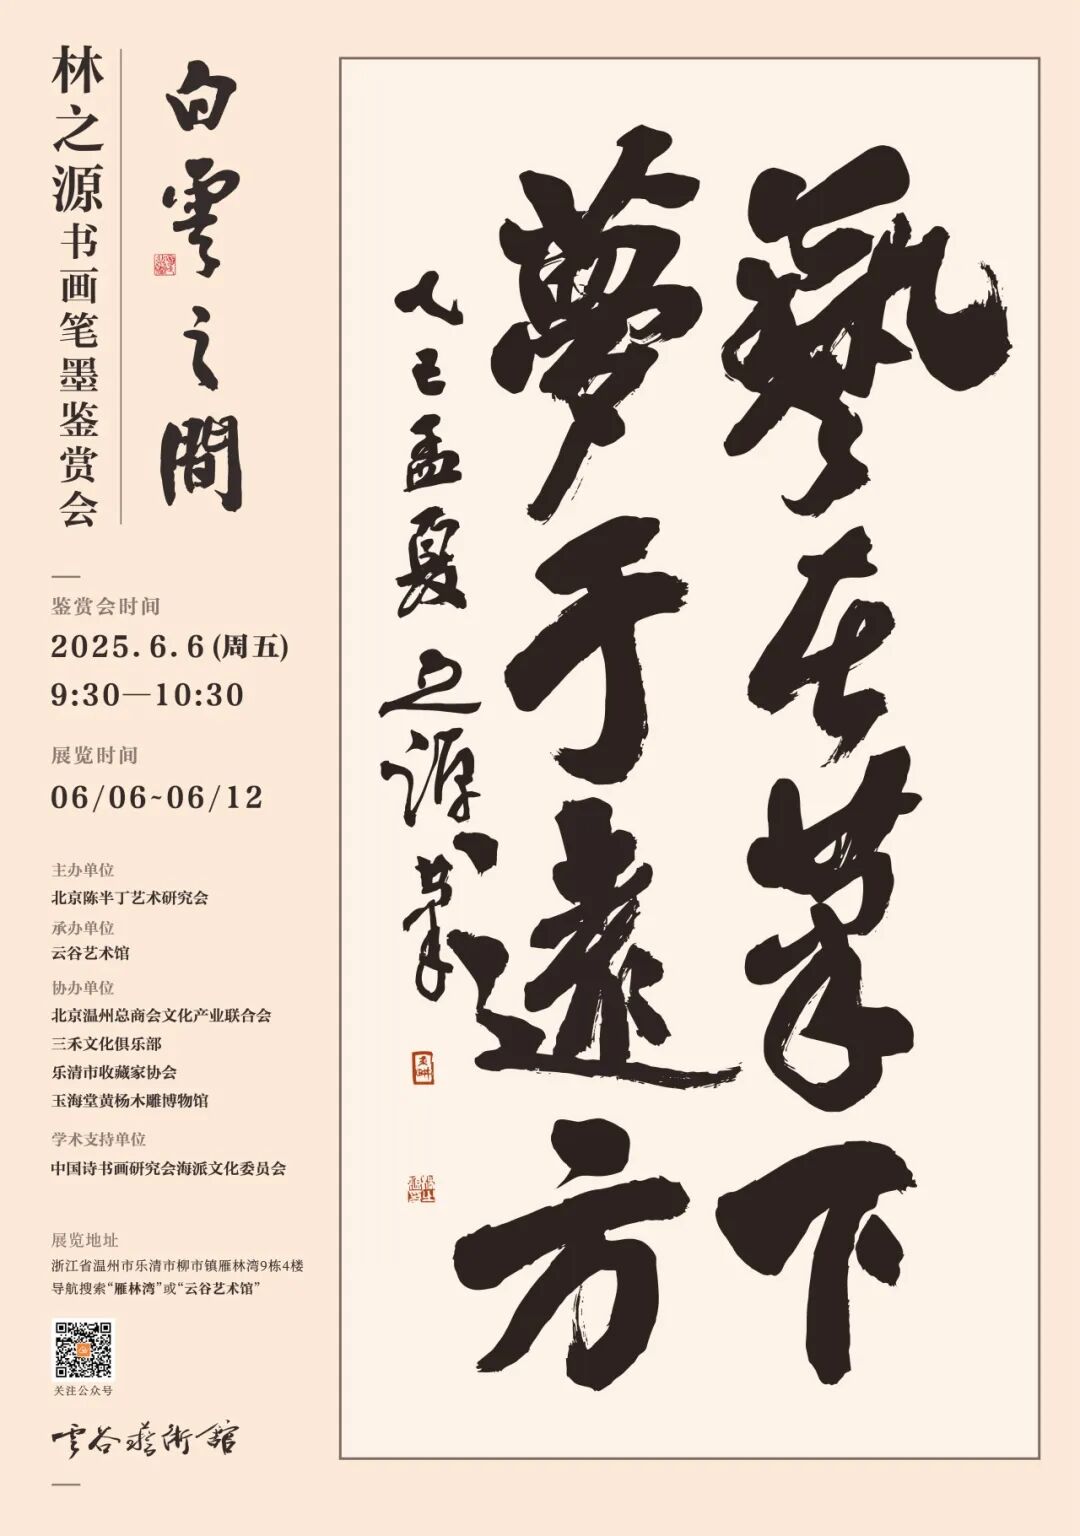 林之源书画笔墨鉴赏会
白雲之間
鉴赏会时间
2025.6.6(周五)
9:30—10:30
展览时间
06/06~06/12
主办单位
北京陈半丁艺术研究会
承办单位
云谷艺术馆
协办单位
北京温州总商会文化产业联合会
三禾文化俱乐部
乐清市收藏家协会
玉海堂黄杨木雕博物馆
学术支持单位
中国诗书画研究会海派文化委员会
展览地址
浙江省温州市乐清市柳市镇雁林湾9栋4楼
导航搜索“雁林湾”或“云谷艺术馆”
关注公众号
雲谷藝術館
藝在筆下
夢于遠方
乙巳孟夏之源筆